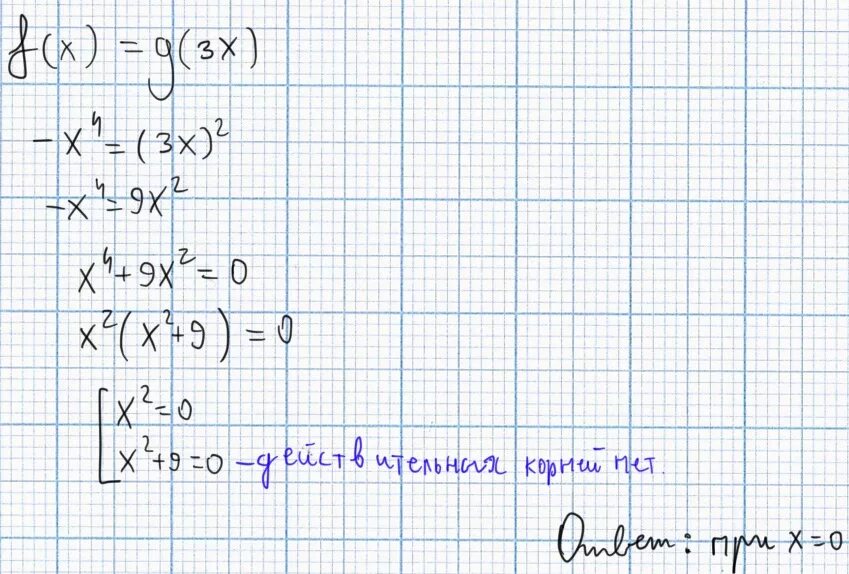 f(x) = g(3x)
-x⁴ = (3x)²
-x⁴ = 9x²
x⁴ + 9x² = 0
x²(x² + 9) = 0
[ x² = 0
x² + 9 = 0 - действительных корней нет.
Ответ: при x = 0